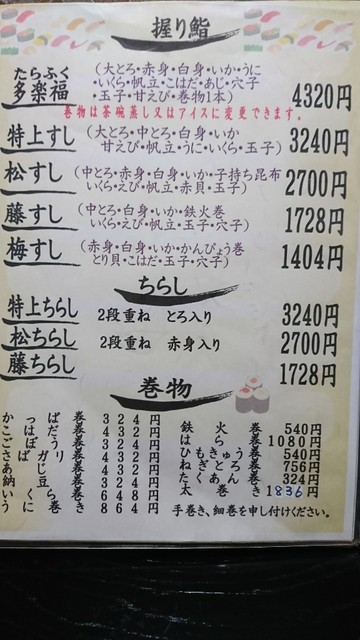 握り鮨
たらふく
多楽福
(大とろ・赤身・白身・いか・うに
・いくら・帆立・こはだ・あじ・穴子
・玉子・甘えび・巻物1本)
4320円
巻物は茶碗蒸し又はアイスに変更できます。
特上すし
(大とろ・中とろ・白身・いか
甘えび・帆立・うに・いくら・玉子)
3240円
松すし
(中とろ・赤身・白身・いか・子持ち昆布
いくら・えび・帆立・赤貝・玉子)
2700円
藤すし
(中とろ・白身・いか・鉄火巻
いくら・えび・帆立・玉子・穴子)
1728円
梅すし
(赤身・白身・いか・かんぴょう巻
とり貝・こはだ・玉子・穴子)
1404円
ちらし
特上ちらし 2段重ね とろ入り 3240円
松ちらし 2段重ね 赤身入り 2700円
藤ちらし 1728円
巻物
かっぱ巻 324円
ごぼう巻 432円
納豆巻 324円
いくら巻 864円
鉄火巻 540円
はら巻 1080円
ひもきゅう巻 540円
ねぎとろ巻 756円
たくあん巻 324円
太巻き 1836円
手巻き、細巻を申し付けください。